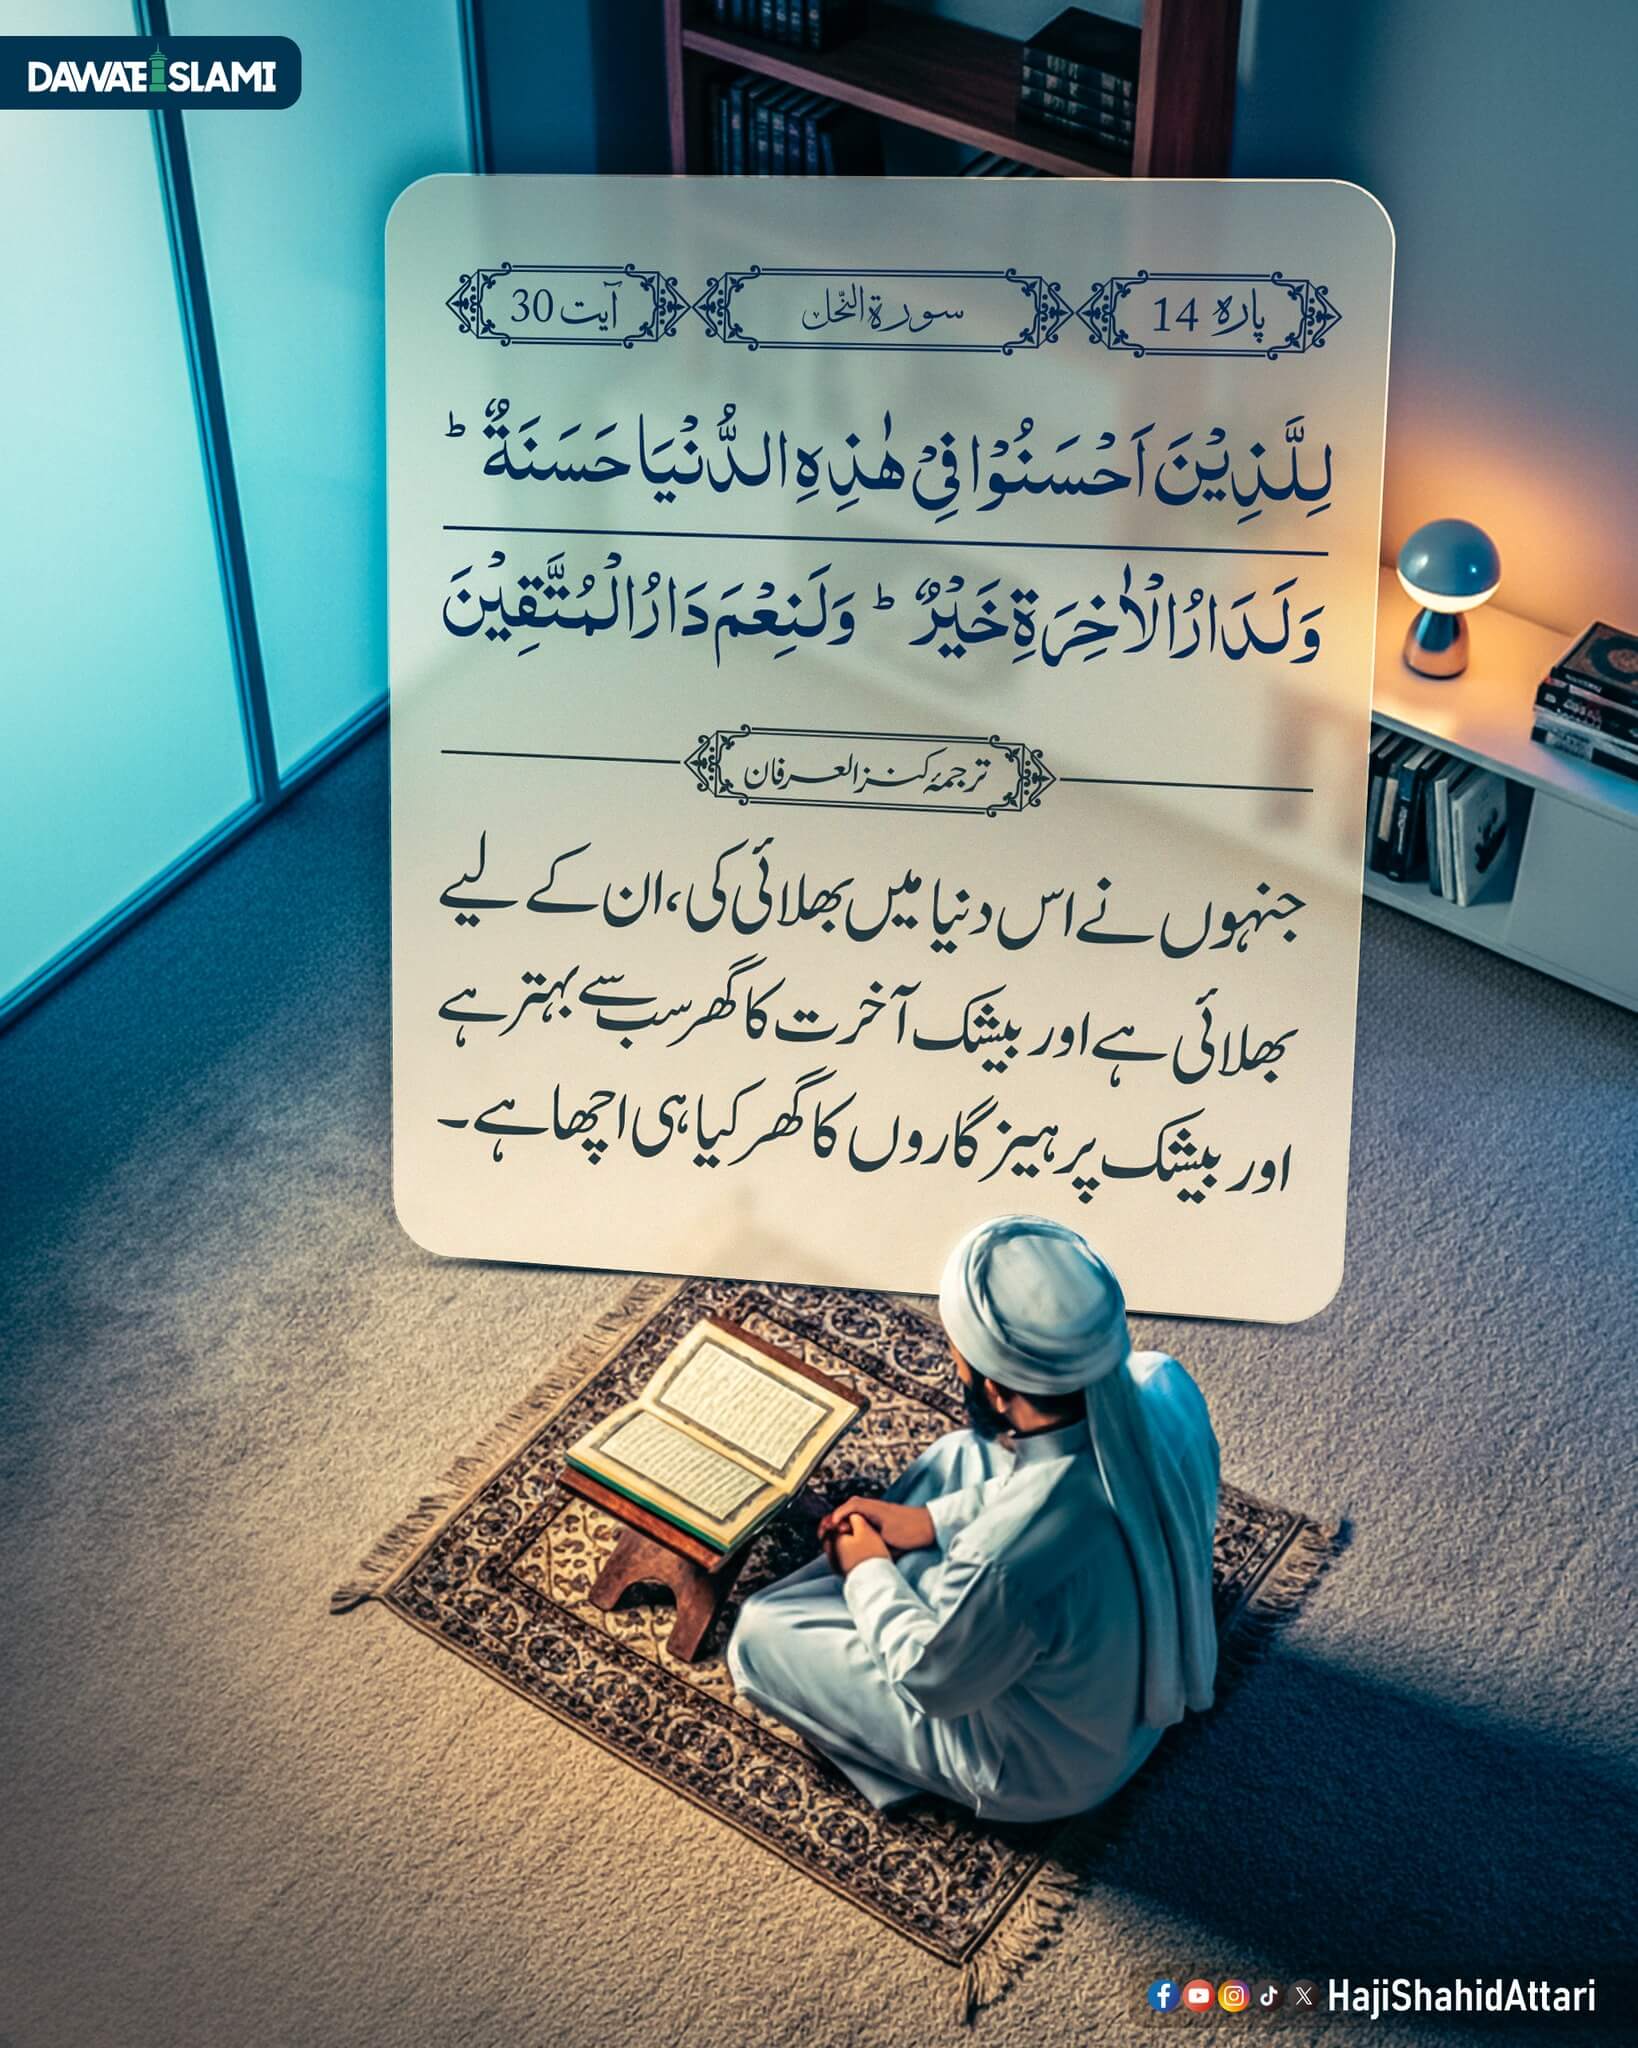 DAWATEISLAMI
پارہ 14
سورۃ النّحل
آیت 30
لِلَّذِیْنَ اَحْسَنُوْا فِیْ هٰذِهِ الدُّنْیَا حَسَنَةٌؕ
وَ لَدَارُ الْاٰخِرَةِ خَیْرٌؕ وَ لَنِعْمَ دَارُ الْمُتَّقِیْنَ
ترجمۂ کنزالعرفان
جنہوں نے اس دنیا میں بھلائی کی، ان کے لیے
بھلائی ہے اور بیشک آخرت کا گھر سب سے بہتر ہے
اور بیشک پرہیزگاروں کا گھر کیا ہی اچھا ہے۔
HajiShahidAttari